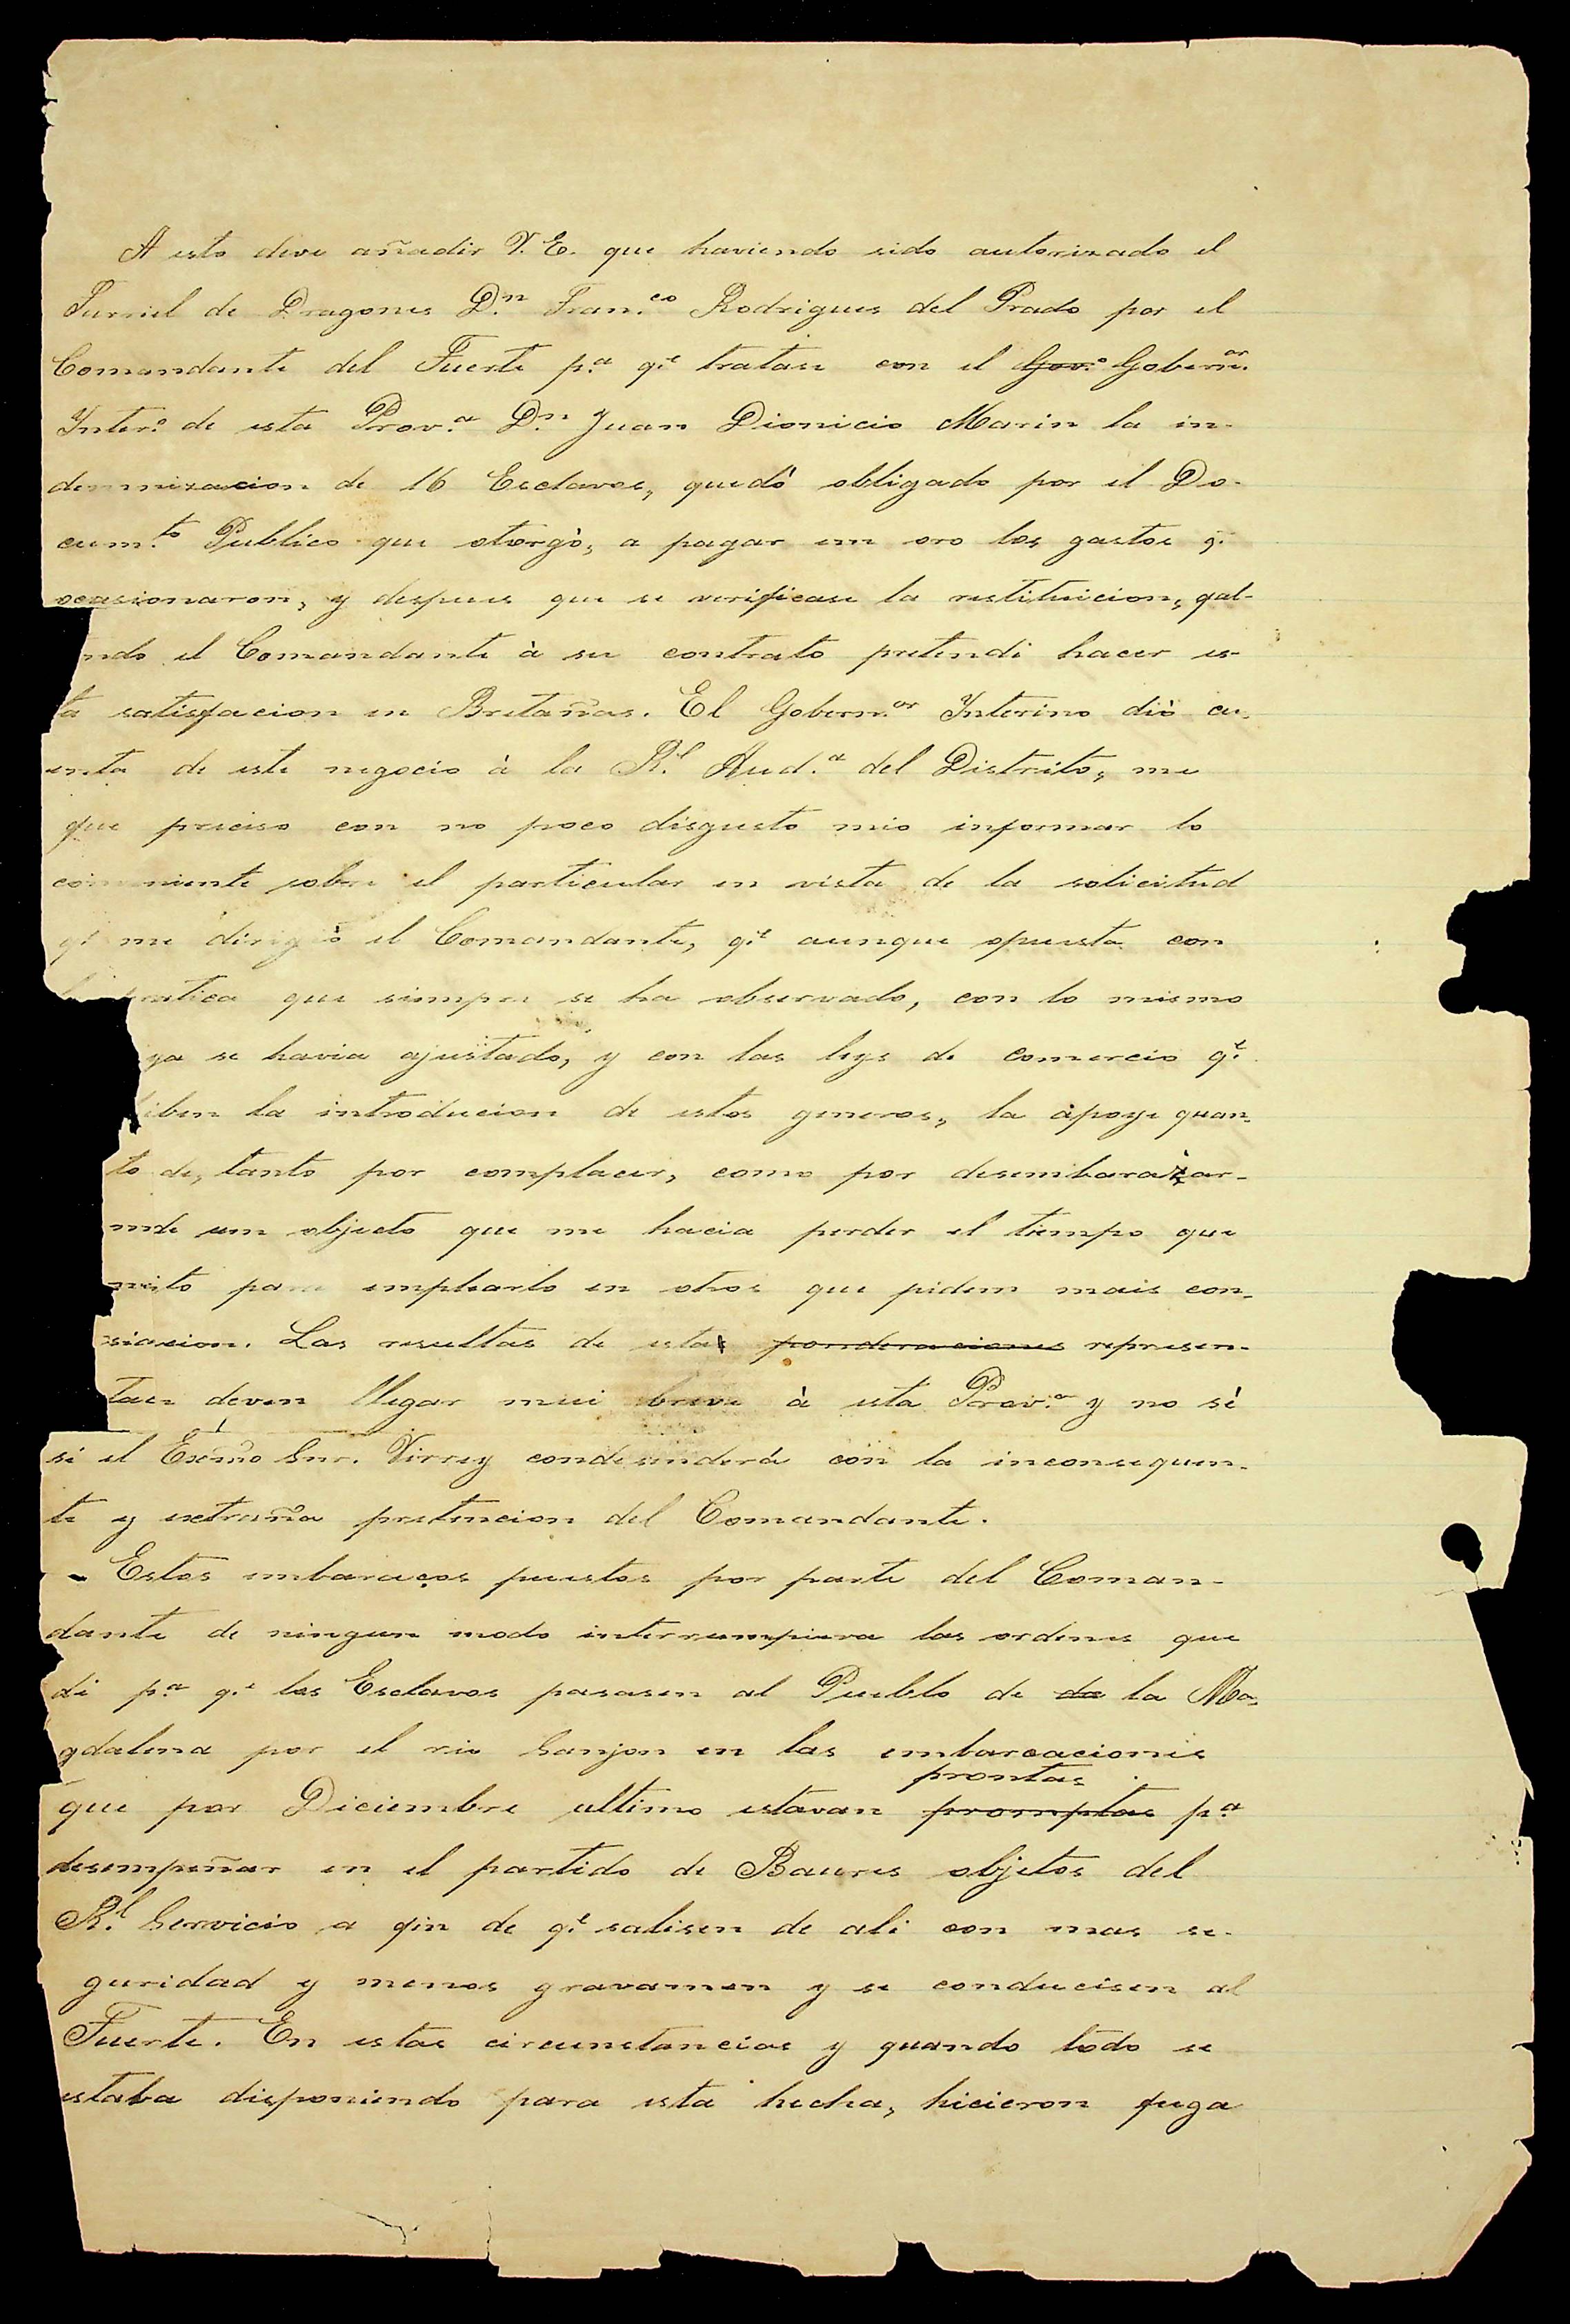 A esto deve añadir V. E. que haviendo sido autorizado el
Furriel de Dragones D.n Fran.co Rodrigues del Prado por el
Comandante del Fuerte p.a q.e tratase con el Gov.o Gobern.or
Inter.o de esta Prov.a D.n Juan Dionicio Marin la in-
demnizacion de 16 Esclavos, quedó obligado por el Do-
cum.to Publico que otorgò, a pagar em oro los gastos q.
ocasionaron, y despues que se verificase la restituicion, fal-
ndo el Comandante à su contrato pretendi hacer es-
ta satisfacion en Bretañas. El Gobern.or Interino diò cu-
enta de este negocio à la R.l Aud.a del Distrito, me
fue preciso con no poco disgusto mio informar lo
conveniente sobre el particular en vista de la solicitud
q.e me dirigiò el Comandante, q.e aunque opuesta con
la pratica que siempre se ha observado, con lo mismo
ya se havia ajustado, y con las leys de comercio q.e
iben la introducion de estos generos, la apoye quan-
to de, tanto por complacer, como por desembarazar-
me de um objecto que me hacia perder el tiempo que
sito para emplearlo en otros que pidem mais con-
siacion. Las resultas de esta ponderaciones represen-
tacn deven llegar mui breve à esta Prov.a y no sè
si el Exc̃mo Snr. Virrey condesenderá con la inconsequen-
te y extraña pretencion del Comandante.
- Estos embaraços puestos por parte del Coman-
dante de ningun modo interrumpiera las ordenes que
di p.a q.e los Esclavos pasasen al Pueblo de da la Ma-
gdalena por el rio Sanjon en las embarcaciones
prontas
que por Diciembre ultimo estavan promptas p.a
desempeñar en el partido de Baures objetos del
R.l Servicio a fin de q.e salisen de ali con mas se-
guridad y menos gravamen y se conducisen al
Fuerte. En estas circunstancias y quando todo se
estaba disponiendo para esta hecha, hicieron fuga